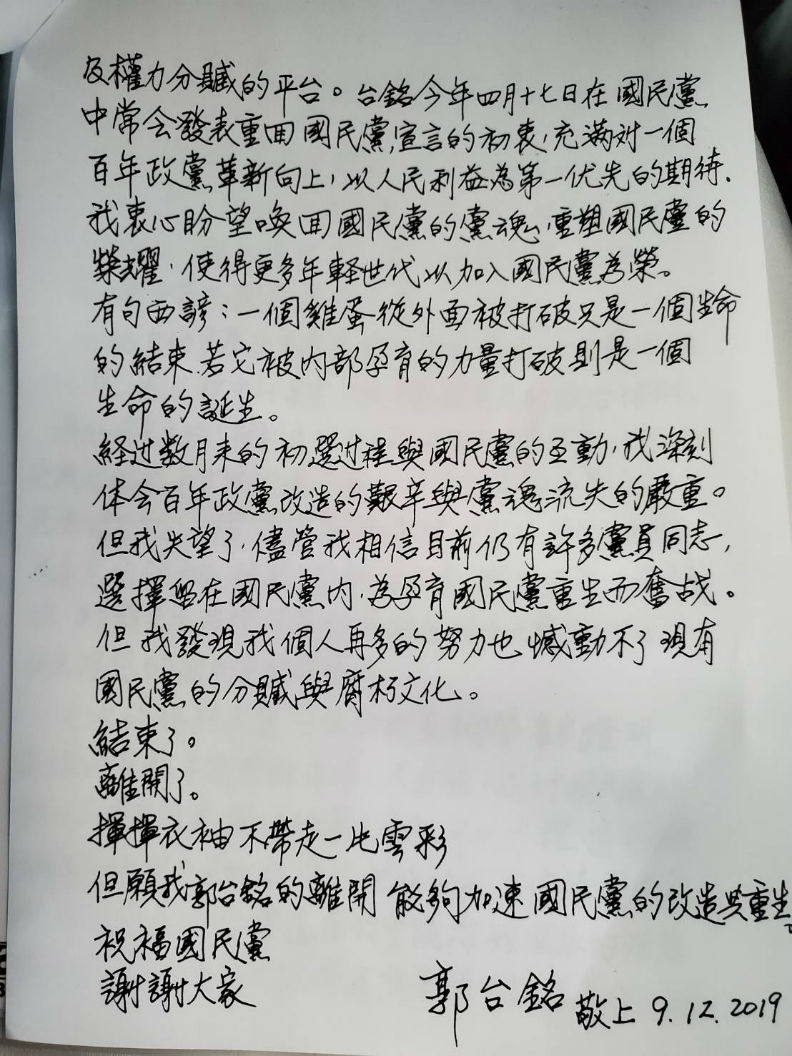 及權力分贓的平台。台銘今年四月十七日在國民黨
中常会發表重回國民黨宣言的初衷,充滿对一個
百年政黨革新向上,以人民利益為第一优先的期待.
我衷心盼望喚回國民黨的黨魂,重塑國民黨的
榮耀,使得更多年軽世代以加入國民黨為榮。
有句西諺:一個雞蛋從外面被打破只是一個生命
的結束.若它被內部孕育的力量打破則是一個
生命的誕生。
経过数月来的初選过程與國民黨的互動,我深刻
体会百年政黨改造的艱辛與黨魂流失的嚴重。
但我失望了,儘管我相信目前仍有許多黨員同志,
選擇留在國民黨內,為孕育國民黨重生而奮战。
但我發現我個人再多的努力也憾動不了現有
國民黨的分贓與腐朽文化。
結束了。
離開了。
揮揮衣袖不帶走一片雲彩
但願我郭台銘的離開 能夠加速國民黨的改造與重生。
祝福國民黨
謝謝大家
郭台銘 敬上 9.12.2019